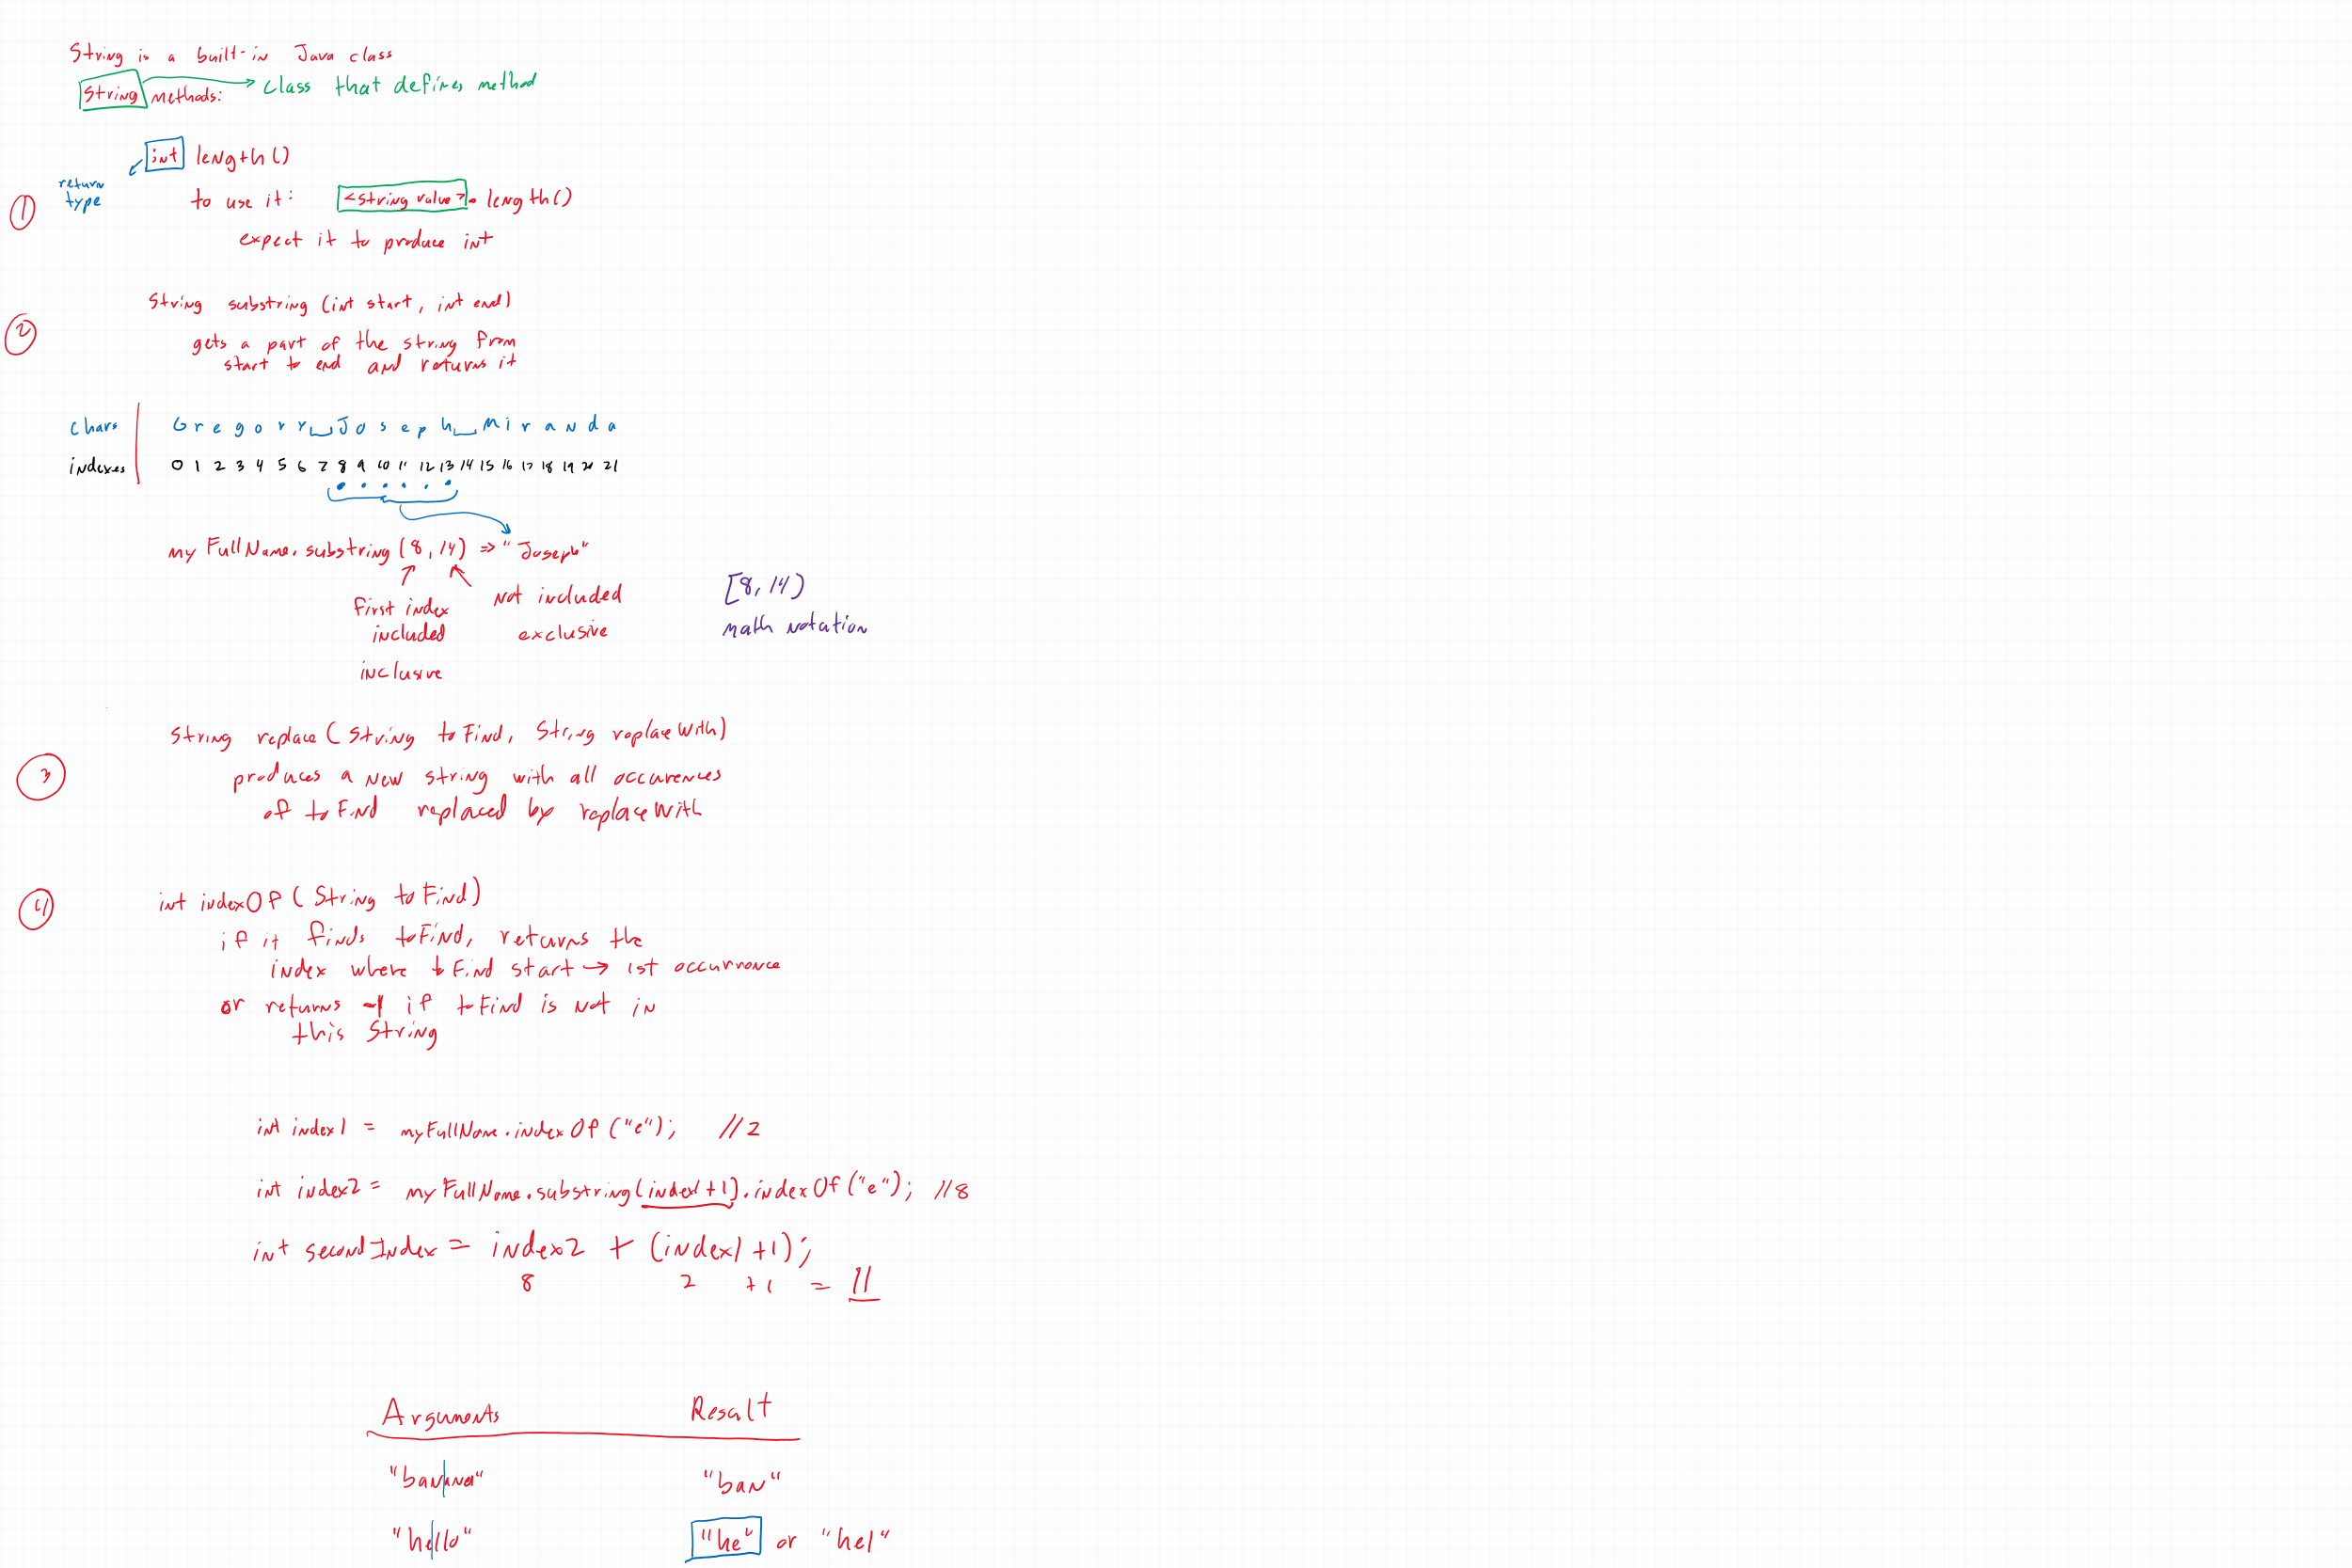 String is a built-in Java class
String methods: → class that defines method
int length()
return type
① to use it: <String value>.length()
expect it to produce int
String substring (int start, int end)
②
gets a part of the string from
start to end and returns it
chars | Gregory␣Joseph␣Miranda
indexes | 0 1 2 3 4 5 6 7 8 9 10 11 12 13 14 15 16 17 18 19 20 21
myFullName.substring(8,14) => "Joseph"
first index included inclusive
not included exclusive
[8,14)
math notation
String replace(String toFind, String replaceWith)
③ produces a new string with all occurences
of toFind replaced by replaceWith
④ int indexOf(String toFind)
if it finds toFind, returns the
index where toFind start → 1st occurrence
or returns -1 if toFind is not in
this String
int index1 = myFullName.indexOf("e"); //2
int index2 = myFullName.substring(index1+1).indexOf("e"); //8
int secondIndex = index2 + (index1+1);
8 2 +1 = 11
Arguments Result
"banana" "ban"
"hello" "he" or "hel"